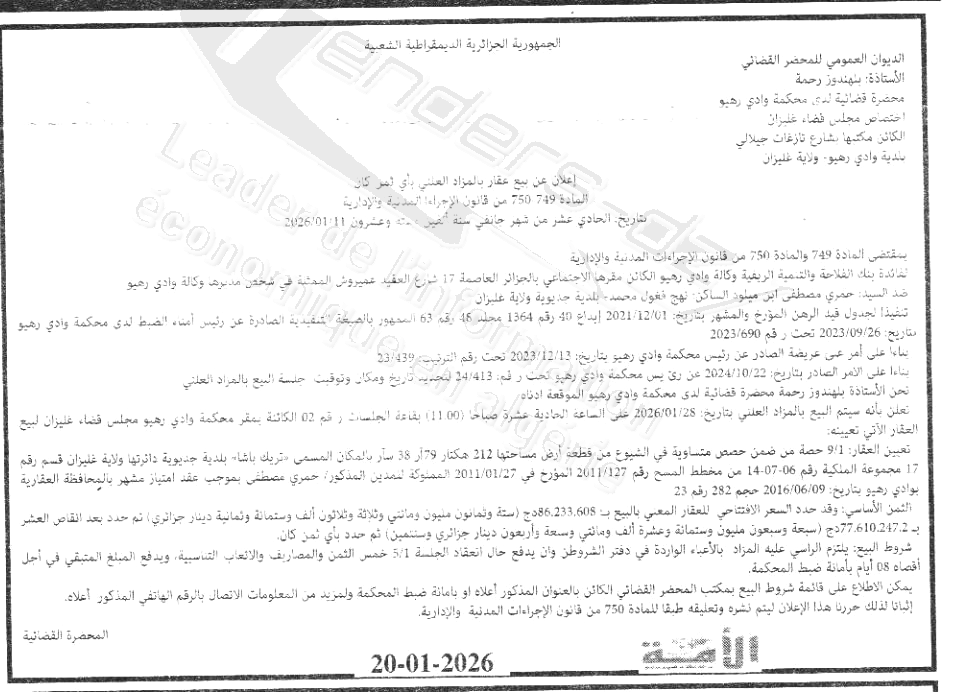 الجمهورية الجزائرية الديمقراطية الشعبية
الديوان العمومي للمحضر القضائي
الأستاذة: بلهندوز رحمة
محضرة قضائية لدى محكمة وادي رهيو
اختصاص مجلس قضاء غليزان
الكائن مكتبها بشارع تازغات جيلالي
بلدية وادي رهيو- ولاية غليزان
إعلان عن بيع عقار بالمزاد العلني بأي ثمن كان
المادة 749 750 من قانون الإجراءات المدنية والإدارية
بتاريخ: الحادي عشر من شهر جانفي سنة ألفين وستة وعشرون 2026/01/11
بمقتضى المادة 749 والمادة 750 من قانون الإجراءات المدنية والإدارية
لفائدة بنك الفلاحة والتنمية الريفية وكالة وادي رهيو الكائن مقرها الاجتماعي بالجزائر العاصمة 17 شارع العقيد عميروش الممثلة في شخص مديرها وكالة وادي رهيو
ضد السيد: حمري مصطفى ابن ميلود الساكن- نهج فغول محمد- بلدية جديوية ولاية غليزان
تنفيذا لجدول قيد الرهن المؤرخ والمشهر بتاريخ: 2021/12/01 إيداع 40 رقم 1364 مجلد 48 رقم 63 الممهور بالصيغة التنفيذية الصادرة عن رئيس أمناء الضبط لدى محكمة وادي رهيو
بتاريخ: 2023/09/26 تحت رقم 2023/690
بناءا على أمر على عريضة الصادر عن رئيس محكمة وادي رهيو بتاريخ: 2023/12/13 تحت رقم الترتيب: 23/439
بناءا على الامر الصادر بتاريخ: 2024/10/22 عن رئيس محكمة وادي رهيو تحت رقم: 24/413 لتحديد تاريخ ومكان وتوقيت جلسة البيع بالمزاد العلني
نحن الأستاذة بلهندوز رحمة محضرة قضائية لدى محكمة وادي رهيو الموقعة ادناه
نعلن بأنه سيتم البيع بالمزاد العلني بتاريخ: 2026/01/28 على الساعة الحادية عشرة صباحا (11:00) بقاعة الجلسات رقم 02 الكائنة بمقر محكمة وادي رهيو مجلس قضاء غليزان لبيع
العقار الآتي تعيينه:
تعيين العقار: 9/1 حصة من ضمن حصص متساوية في الشيوع من قطعة أرض مساحتها 212 هكتار 79أر 38 سآر بالمكان المسمى «تريك باشا» بلدية جديوية دائرتها ولاية غليزان قسم رقم
17 مجموعة الملكية رقم 06-07-14 من مخطط المسح رقم 2011/127 المؤرخ في 2011/01/27 المملوكة للمدين المذكور/ حمري مصطفى بموجب عقد امتياز مشهر بالمحافظة العقارية
بوادي رهيو بتاريخ: 2016/06/09 حجم 282 رقم 23
الثمن الأساسي: وقد حدد السعر الافتتاحي للعقار المعني بالبيع بـ: 86.233.608دج (ستة وثمانون مليون ومائتي وثلاثة وثلاثون ألف وستمائة وثمانية دينار جزائري) تم حدد بعد انقاص العشر
بـ 77.610.247.2دج (سبعة وسبعون مليون وستمائة وعشرة ألف ومائتي وسبعة وأربعون دينار جزائري وسنتمين) ثم حدد بأي ثمن كان.
شروط البيع: يلتزم الراسي عليه المزاد بالأعباء الواردة في دفتر الشروطن وان يدفع حال انعقاد الجلسة 5/1 خمس الثمن والمصاريف والاتعاب التناسبية، ويدفع المبلغ المتبقي في أجل
أقصاه 08 أيام بأمانة ضبط المحكمة.
يمكن الاطلاع على قائمة شروط البيع بمكتب المحضر القضائي الكائن بالعنوان المذكور أعلاه او بامانة ضبط المحكمة ولمزيد من المعلومات الاتصال بالرقم الهاتفي المذكور أعلاه.
إثباتا لذلك حررنا هذا الإعلان ليتم نشره وتعليقه طبقا للمادة 750 من قانون الإجراءات المدنية والإدارية.
المحضرة القضائية
الأمة
20-01-2026